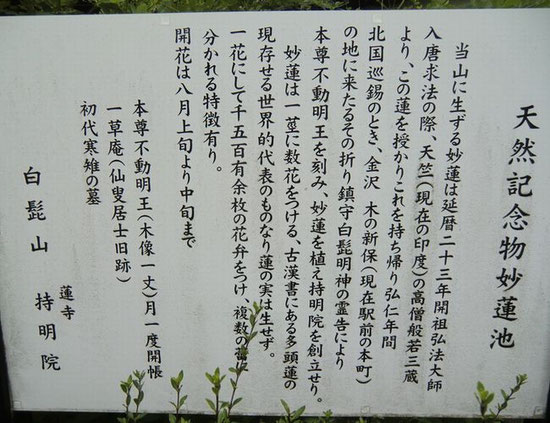 天然記念物妙蓮池
当山に生ずる妙蓮は延暦二十三年開祖弘法大師
入唐求法の際、天竺(現在の印度)の高僧般若三蔵
より、この蓮を授かりこれを持ち帰り弘仁年間
北国巡錫のとき、金沢 木の新保(現在駅前の本町)
の地に来たるその折り鎮守白髭明神の霊告により
本尊不動明王を刻み、妙蓮を植え持明院を創立せり。
妙蓮は一茎に数花をつける、古漢書にある多頭蓮の
現存せる世界的代表のものなり蓮の実は生せず。
一花にして千五百有余枚の花弁をつけ、複数の
分かれる特徴有り。
開花は八月上旬より中旬まで
本尊不動明王(木像一丈)月一度開帳
一草庵(仙叟居士旧跡)
初代寒雉の墓
蓮寺
白髭山 持明院